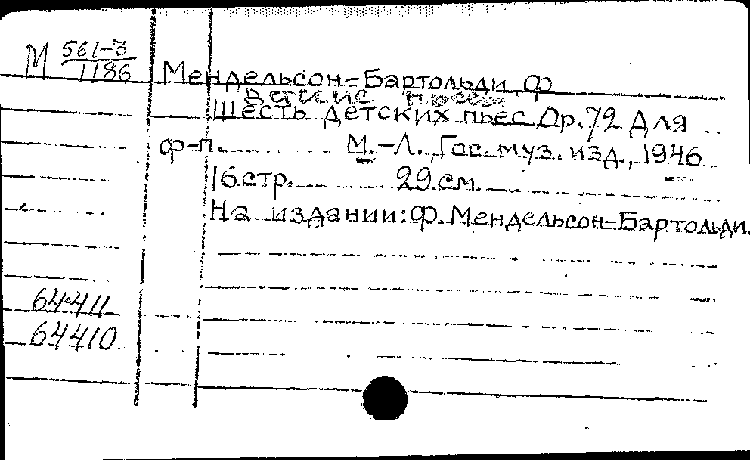 М 561-3/1186
Мендельсон-Бартольди, Ф
Детские пьесы
Шесть детских пьес Ор.72 Для
ф-п. М.-Л., Гос. муз. изд., 1946
16 стр. 29 см.
На издании: Ф. Мендельсон-Бартольди.
64411
64410